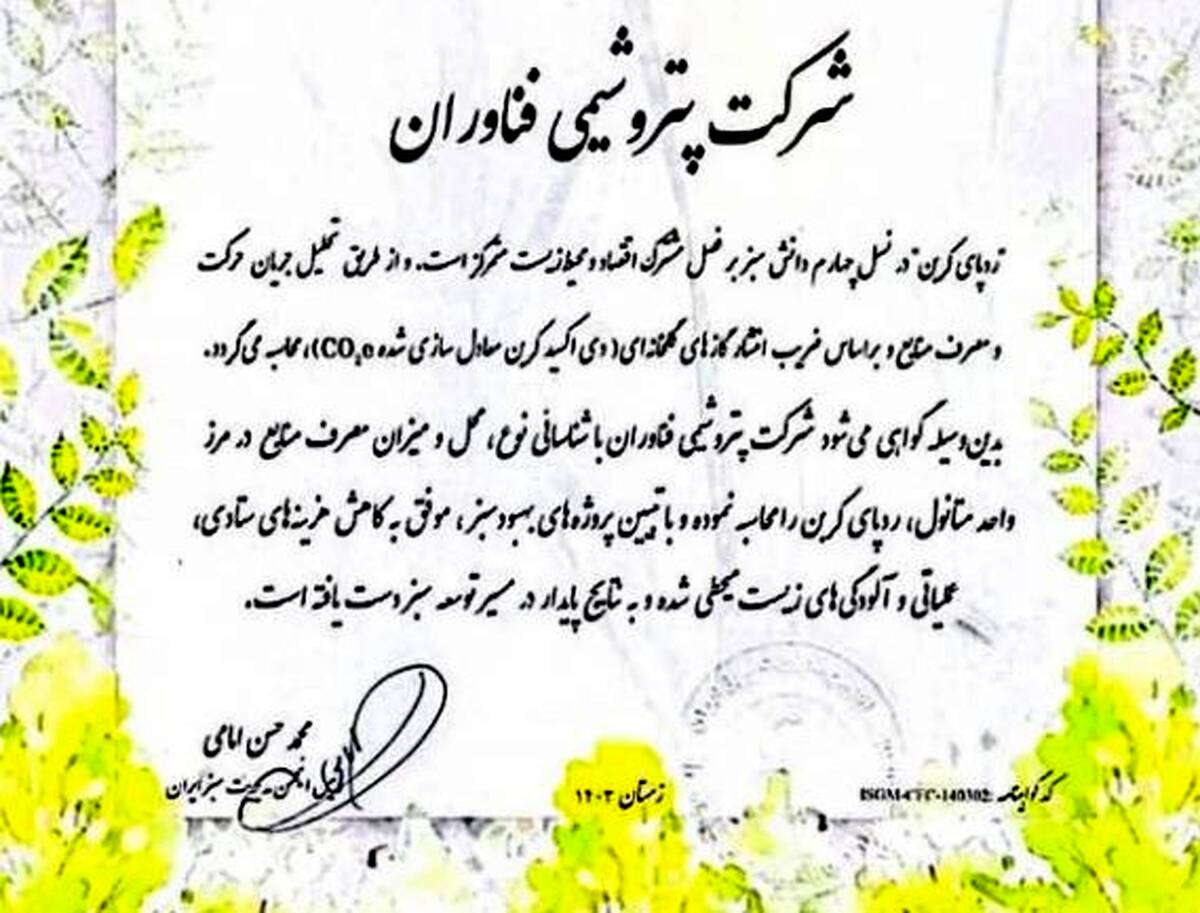 شرکت پتروشیمی فناوران
"ردپای کربن" در نسل چهارم دانش سبز بر فصل مشترک اقتصاد و محیط زیست متمرکز است. و از طریق تحلیل جریان حرکت
و مصرف منابع و براساس ضریب انتشار گازهای گلخانه‌ای( دی اکسید کربن معادل سازی شده CO₂e)، محاسبه می‌گردد.
بدین‌وسیله گواهی می‌شود شرکت پتروشیمی فناوران با شناسائی نوع، محل و میزان مصرف منابع در مرز
واحد متانول، ردپای کربن را محاسبه نموده و با تبیین پروژه‌های بهبود سبز، موفق به کاهش هزینه‌های ستادی،
عملیاتی و آلودگی‌های زیست محیطی شده و به نتایج پایدار در مسیر توسعه سبز دست یافته است.
محمد حسن امامی
انجمن مدیریت سبز ایران
زمستان ۱۴۰۳
کد گواهینامه: ISGM-CFC-140302